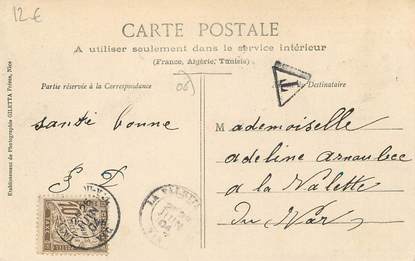 12€
CARTE POSTALE
A utiliser seulement dans le service intérieur
(France, Algérie, Tunisie).
Partie réservée à la Correspondance
(06)
T
Destinataire
Etablissement de Photographie GILETTA Frères, Nice
santé bonne
Mademoiselle
adeline
a la Valette
du Var
LA VALETTE
JUIN
04
VAR